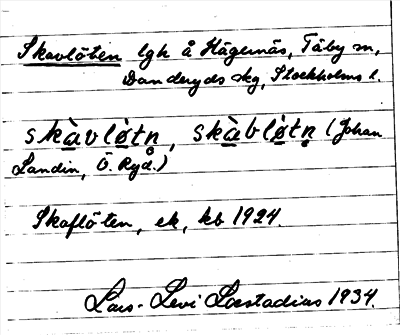 Skavlöten lgh å Hägernäs, Täby sn,
Danderyds skg, Stockholms l.
skàvlö̀tn̥, skàblö̀tn̥ (Johan
Landin, Ö. Ryd.)
Skaflöten, ek, kb 1924.
Lars-Levi Læstadius 1934.